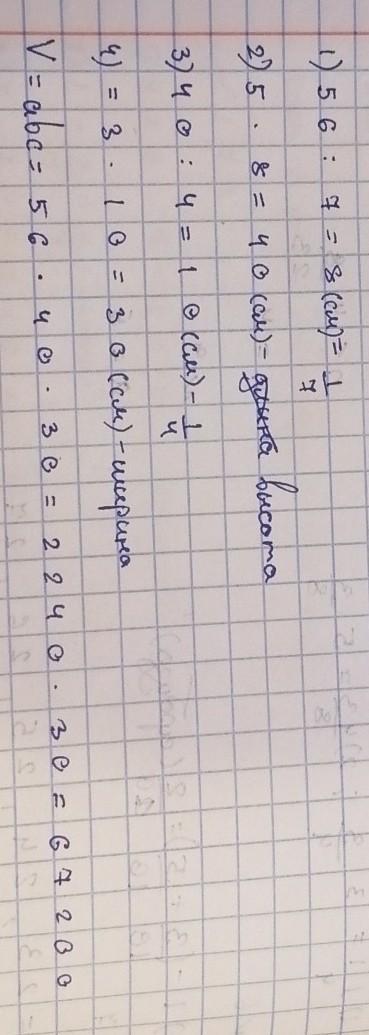 1) 56 : 7 = 8 (см) = 1/7
2) 5 · 8 = 40 (см) = длина высота
3) 40 : 4 = 10 (см) - 1/4
4) = 3 · 10 = 30 (см) - ширина
V = abc = 56 · 40 · 30 = 2240 · 30 = 67200